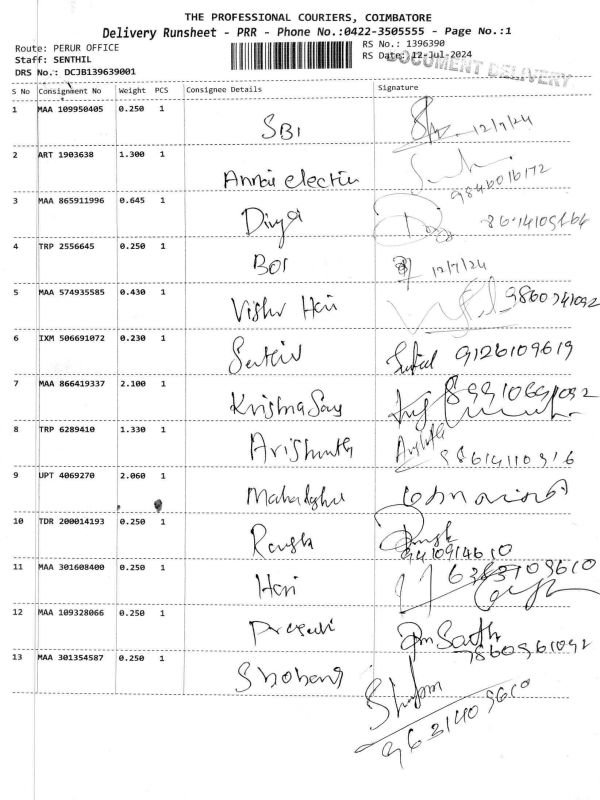 THE PROFESSIONAL COURIERS, COIMBATORE
Delivery Runsheet - PRR - Phone No.:0422-3505555 - Page No.:1
Route: PERUR OFFICE
RS No.: 1396390
Staff: SENTHIL
RS Date: 12-Jul-2024
DRS No.: DCJB139639001
DOCUMENT DELIVERY
S No Consignment No Weight PCS Consignee Details Signature
1 MAA 109950405 0.250 1 SBI 12/7/24
2 ART 1903638 1.300 1 Annai 9846016172
3 MAA 865911996 0.645 1 Divya
4 TRP 2556645 0.250 1 BOI 12/7/24
5 MAA 574935585 0.430 1 Vishr Hari 9860741092
6 IXM 506691072 0.230 1 9126109619
7 MAA 866419337 2.100 1 Krishna 89910691092
8 TRP 6289410 1.330 1
9 UPT 4069270 2.060 1
10 TDR 200014193 0.250 1 9410914610
11 MAA 301608400 0.250 1 Hari 6383109610
12 MAA 109328066 0.250 1 9860961092
13 MAA 301354587 0.250 1
9631409610